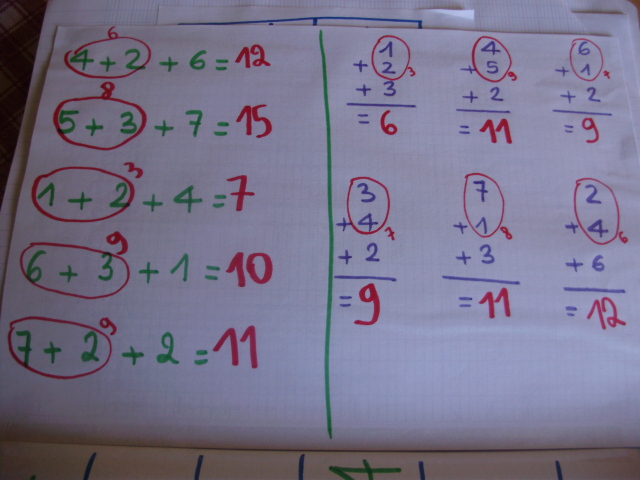 6
4 + 2 + 6 = 12
8
5 + 3 + 7 = 15
3
1 + 2 + 4 = 7
9
6 + 3 + 1 = 10
9
7 + 2 + 2 = 11
1
+ 2 3
+ 3
= 6
4
+ 5 9
+ 2
= 11
6
+ 1 7
+ 2
= 9
3
+ 4 7
+ 2
= 9
7
+ 1 8
+ 3
= 11
2
+ 4 6
+ 6
= 12